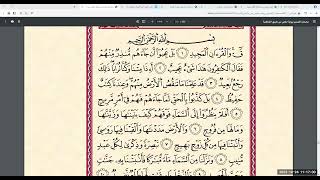 بِسْمِ اللَّهِ الرَّحْمَٰنِ الرَّحِيمِ
قٓ وَالْقُرْءَانِ الْمَجِيدِ ١ بَلْ عَجِبُوا أَن جَاءَهُم مُّنذِرٌ مِّنْهُمْ
فَقَالَ الْكَٰفِرُونَ هَٰذَا شَيْءٌ عَجِيبٌ ٢ أَءِذَا مِتْنَا وَكُنَّا تُرَابًا ذَٰلِكَ
رَجْعٌ بَعِيدٌ ٣ قَدْ عَلِمْنَا مَا تَنقُصُ الْأَرْضُ مِنْهُمْ وَعِندَنَا كِتَٰبٌ
حَفِيظٌ ٤ بَلْ كَذَّبُوا بِالْحَقِّ لَمَّا جَاءَهُمْ فَهُمْ فِي أَمْرٍ مَّرِيجٍ
٥ أَفَلَمْ يَنظُرُوا إِلَى السَّمَاءِ فَوْقَهُمْ كَيْفَ بَنَيْنَٰهَا وَزَيَّنَّٰهَا
وَمَا لَهَا مِن فُرُوجٍ ٦ وَالْأَرْضَ مَدَدْنَٰهَا وَأَلْقَيْنَا فِيهَا رَوَٰسِيَ
وَأَنبَتْنَا فِيهَا مِن كُلِّ زَوْجٍ بَهِيجٍ ٧ تَبْصِرَةً وَذِكْرَىٰ لِكُلِّ عَبْدٍ
مُّنِيبٍ ٨ وَنَزَّلْنَا مِنَ السَّمَاءِ مَاءً مُّبَٰرَكًا فَأَنبَتْنَا بِهِ جَنَّٰتٍ